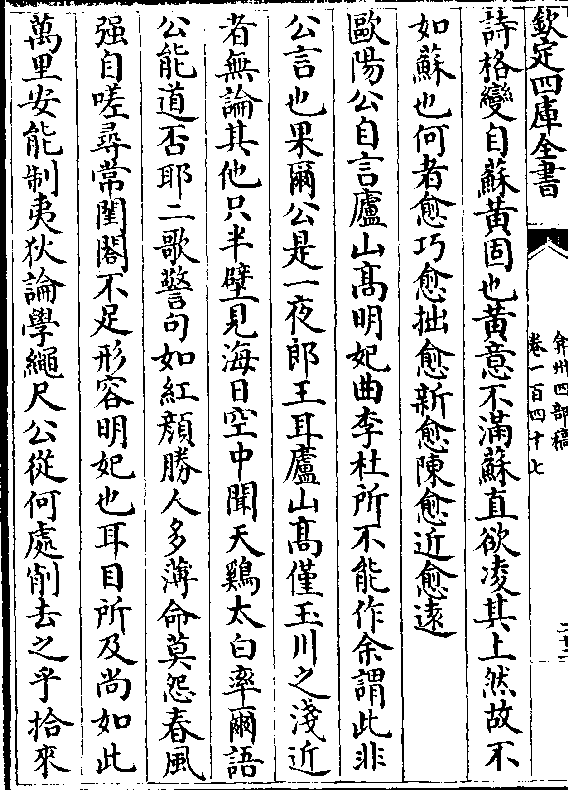 欽定四庫全書
弇州四部稿
卷一百四十七
詩格變自蘇黃固也黃意不滿蘇直欲凌其上然故不
如蘇也何者愈巧愈拙愈新愈陳愈近愈遠
歐陽公自言廬山髙明妃曲李杜所不能作余謂此非
公言也果爾公是一夜郎王耳廬山髙僅玉川之淺近
者無論其他只半壁見海日空中聞天鷄太白率爾語
公能道否耶二歌警句如紅顔勝人多薄命莫怨春風
强自嗟尋常閨閣不足形容明妃也耳目所及尚如此
萬里安能制夷狄論學繩尺公從何處削去之乎拾來